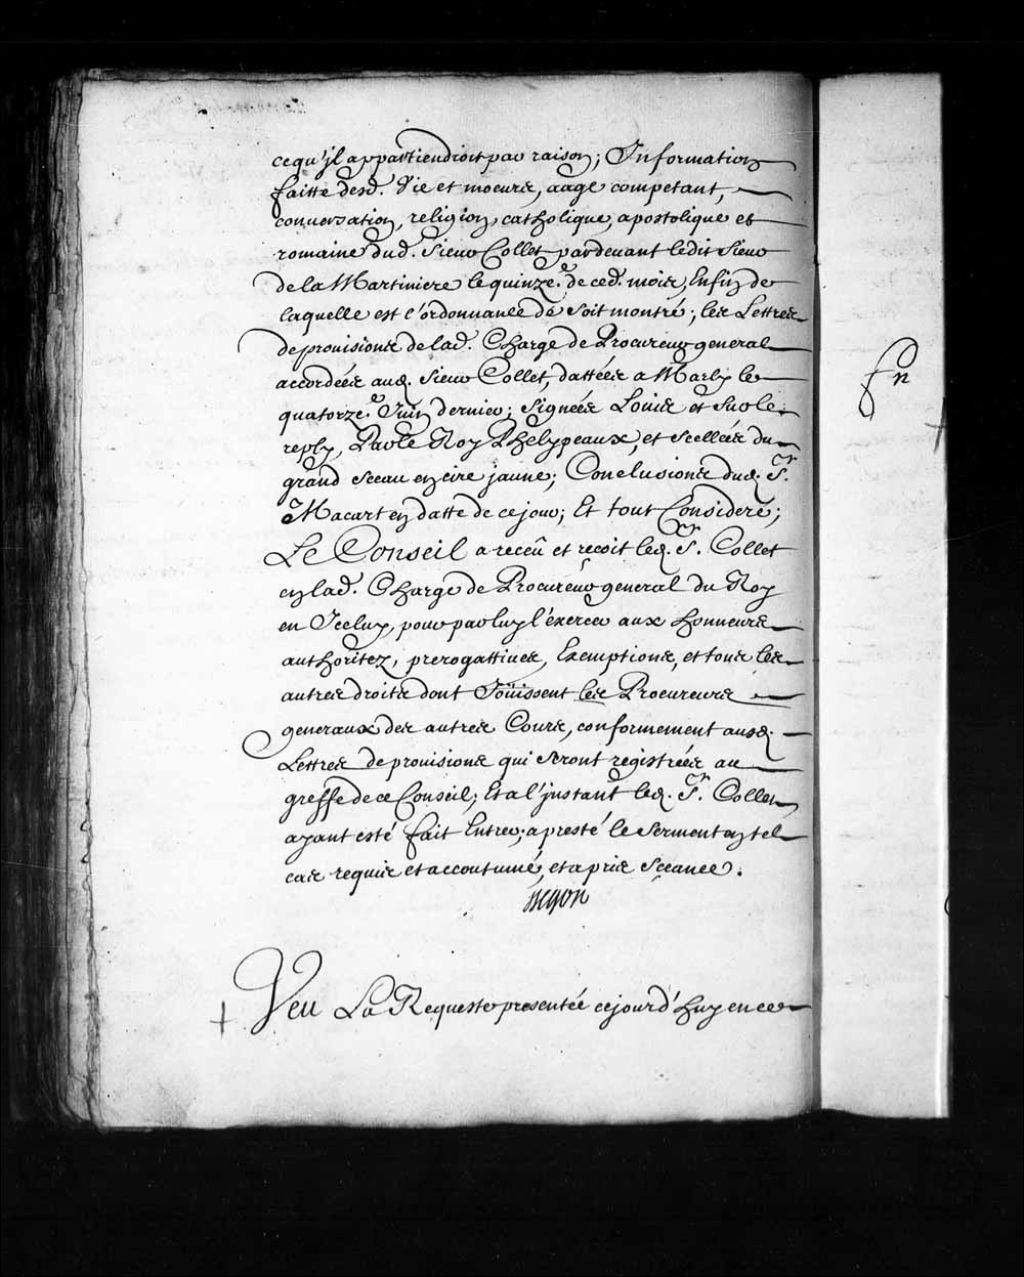 cequ'jl appartiendroit par raison; Information
faitte desd. Vie et moeurs, aage competant,
conversation, religion catholique, apostolique et
romaine dud. Sieur Collet pardevant ledit Sieur
de la Martiniere le quinze.e de ced. mois, Enfin de
laquelle est l'ordonnance de soit montré; les Lettres
de provisions de lad. Charge de Procureur general
accordées aud. Sieur Collet, dattées a Marly le
quatorze.e Juin dernier; Signées Louis et Sur le
reply, Par le Roy Phelypeaux, et scellées du
grand Sceau en cire jaune; Conclusions dud. Sr.
Macart en datte de ce jour; Et tout Consideré;
Le Conseil a receû et reçoit led. Sr. Collet
en lad. Charge de Procureur general du Roy
en Iceluy, pour par luy l'exercer aux honneurs
authoritez, prerogattives, Exemptions, et tous les
autres droits dont Joüissent les Procureurs
generaux des autres Cours, conformement ausd.
Lettres de provisions qui seront registrées au
greffe de ce Conseil; Et a l'jnstant led. Sr. Collet
ayant esté fait Entrer, a presté le Serment en tel
cas requis et accoutumé, et a pris Sceance.
Begon
Veu La Requeste presentée cejourd'huy en ce